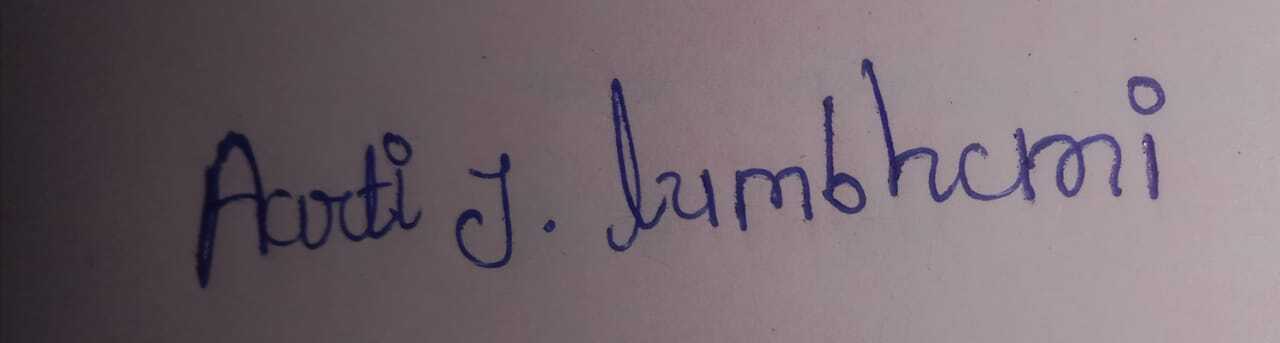 Aarti J. lumbhani